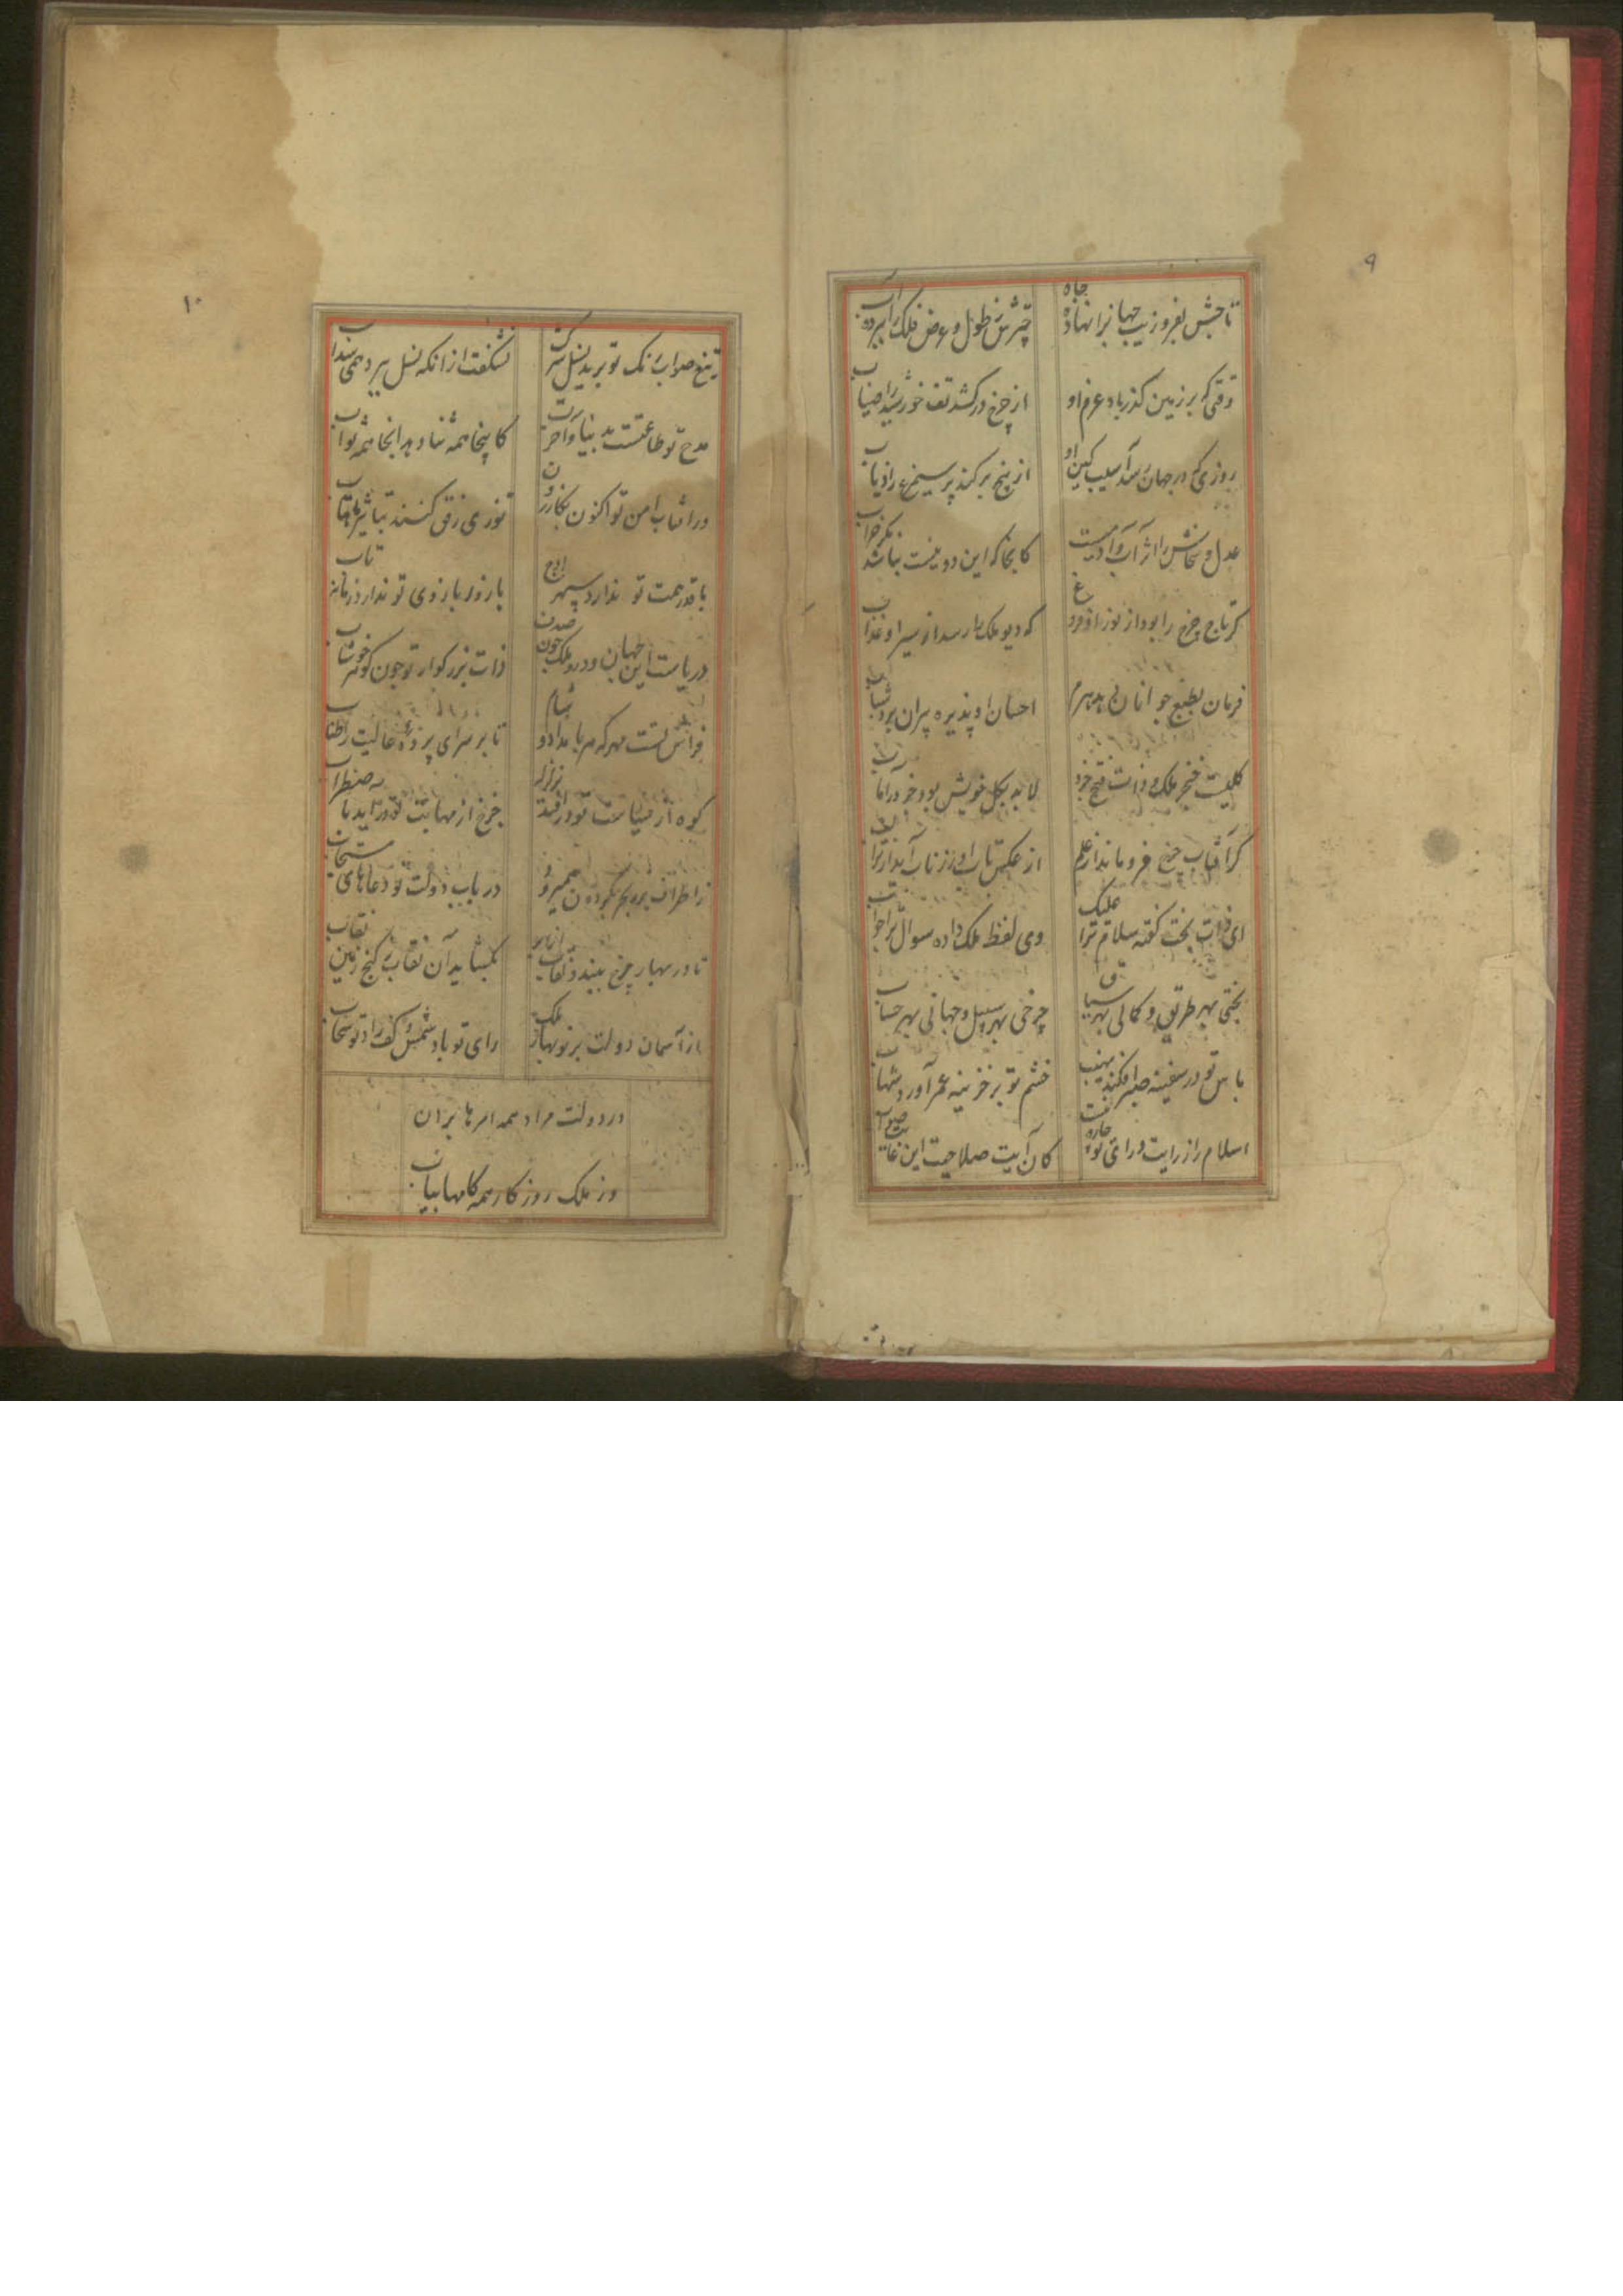 ۹
تاجش بفر و زیب جهانرا نهاده جاه
چترش ز طول و عرض فلک را ببرده آب
وقتی که بر زمین گذرد باد عزم او
از چرخ در کشد تف خورشید را ضیاب
روزی که در جهان رسد آسیب کین او
از بیخ بر کند پر سیمرغ را ذباب
عدل و سخاش را اثر آب و آتشست
کانجا که این دو نیست نباشد مگر خراب
گر تاج چرخ را بود از نور او فروغ
که دیو ملک را رسد از سیر او عذاب
فرمان بطبع جوانان دهد هرم
احسان او پذیره پیران برد شباب
کلیست خنجر ملک و ذات فتح جزو
لابد بکل خویش بود جزو را مآب
گر آفتاب چرخ فرو ماند از علم
از عکس تاب او زند آن آبدار تاب
ای ذات بخت گفته سلام ترا علیک
وی لفظ ملک داده سوال ترا جواب
بختی بهر طریق و کمالی بهر سیاق
چرخی بهر سبیل و جهانی بهر حساب
با س تو در سفینه صبر افکند نهیب
خشم تو بر خزینه عمر آورد شهاب
اسلام را ز رایت و رای تو چاره نیست
کان آیت صلاحست این غایت صواب
۱۰
تیغ صواب رنگ تو برید نسل شرک
نشگفت از آنکه نسل ببرد همی سداب
مدح تو طاعتست بدنیا و آخرت
کاینجا همه ثنا و بر آنجا همه ثواب
در آفتاب امن تو اکنون بکازرون
توزی رزق کنند بتاثیر ماهتاب
با قدر همت تو ندارد سپهر اوج
با زور بازوی تو ندارد زمانه تاب
دریاست این جهان و درو ملک چون صدف
ذات بزرگوار تو چون گوهر خوشاب
فراش تست مهر که هر بامداد و شام
تا بر سرای پرده عالیت را طناب
کوه از سیاست تو در افتد بزلزله
چرخ از مهابت تو در آید باضطراب
ز اطراف بر و بحر بگردون همیرود
در باب دولت تو دعاهای مستجاب
تا در بهار چرخ ببندد نقاب ابر
بگشاید آن نقاب ز گنج زمین نقاب
از آسمان دولت بر نوبهار ملک
رای تو باد شمس و کف راد تو سحاب
در دولت مراد همه امرها بران
وز ملک روزگار همه کامها بیاب